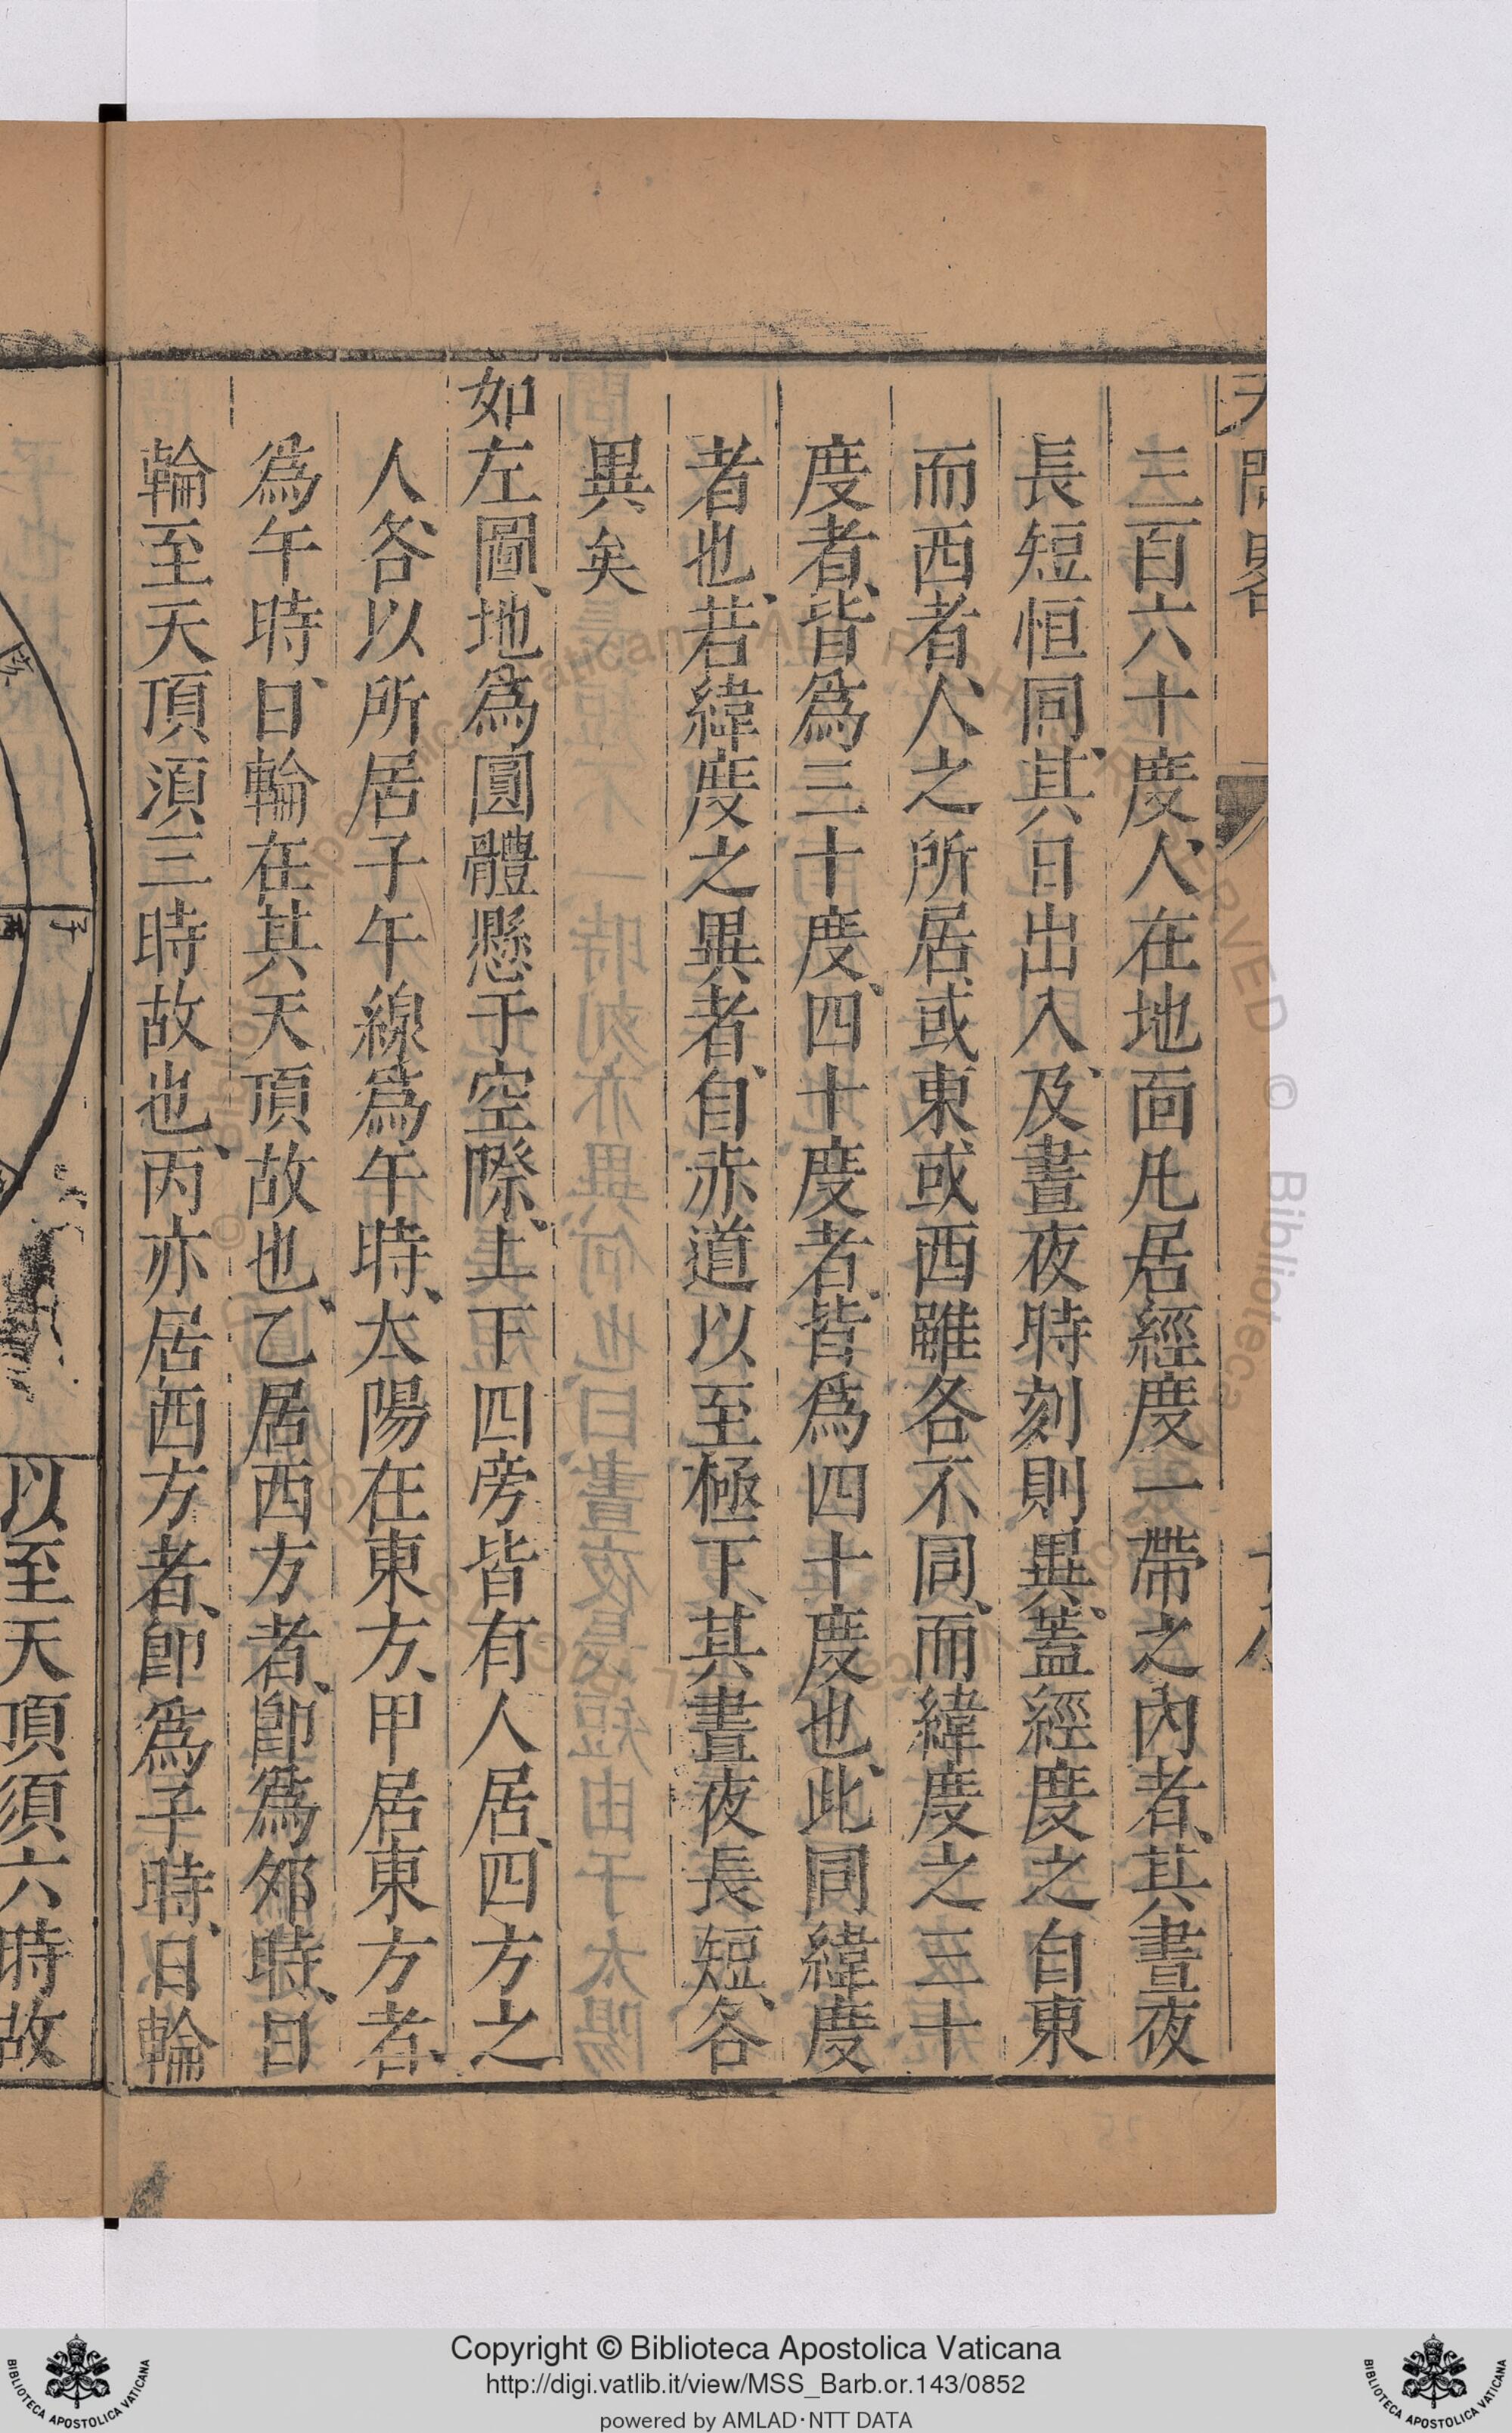 三百六十度人在地面凡居經度一帶之內者、其晝夜
長短恒同、其日出入、及晝夜時刻則異、蓋經度之自東
而西者、人之所居、或東或西雖各不同、而緯度之三十
度者、皆爲三十度、四十度者、皆爲四十度也、此同緯度
者也、若緯度之異者、自赤道以至極下、其晝夜長短、各
異矣
如左圖、地爲圓體懸于空際、上下四旁皆有人居、四方之
人各以所居子午線爲午時、太陽在東方、甲居東方者、
爲午時、日輪在其天頂故也、乙居西方者、卽爲夘時、日
輪至天頂須三時故也、丙亦居西方者、卽爲子時、日輪
以至天頂須六時故
Copyright © Biblioteca Apostolica Vaticana
http://digi.vatlib.it/view/MSS_Barb.or.143/0852
powered by AMLAD·NTT DATA
BIBLIOTECA APOSTOLICA VATICANA
BIBLIOTECA APOSTOLICA VATICANA